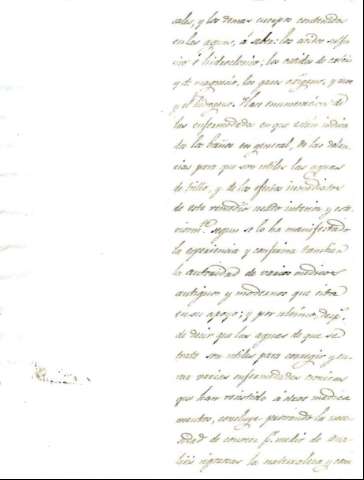 sales, y los demas cuerpos contenidos
en las aguas, á saber: los acidos sulfu
rico é hidroclorico; los oxidos de calcio
y de magnesio, los gases oxigeno, y azoe
y el hidrogeno. Hace enumeracion de
las enfermedades en que están indica
dos los baños en general, de las dolen
cias para que son utiles las aguas
de y de los efectos inmediatos
de este remedio usado interior y este
riormte. segun se lo ha manifestado
la esperiencia y confirma tambien
la autoridad de varios medicos
antiguos y modernos que cita
en su apoyo; y por ultimo, desp.
de decir que las aguas de que se
trata son utiles para corregir y cu
rar varias enfermedades cronicas
que han resistido á otros medica
mentos, concluye probando la nece
sidad de conocer pr. medio de ana
lisis rigorosas la naturaleza y can